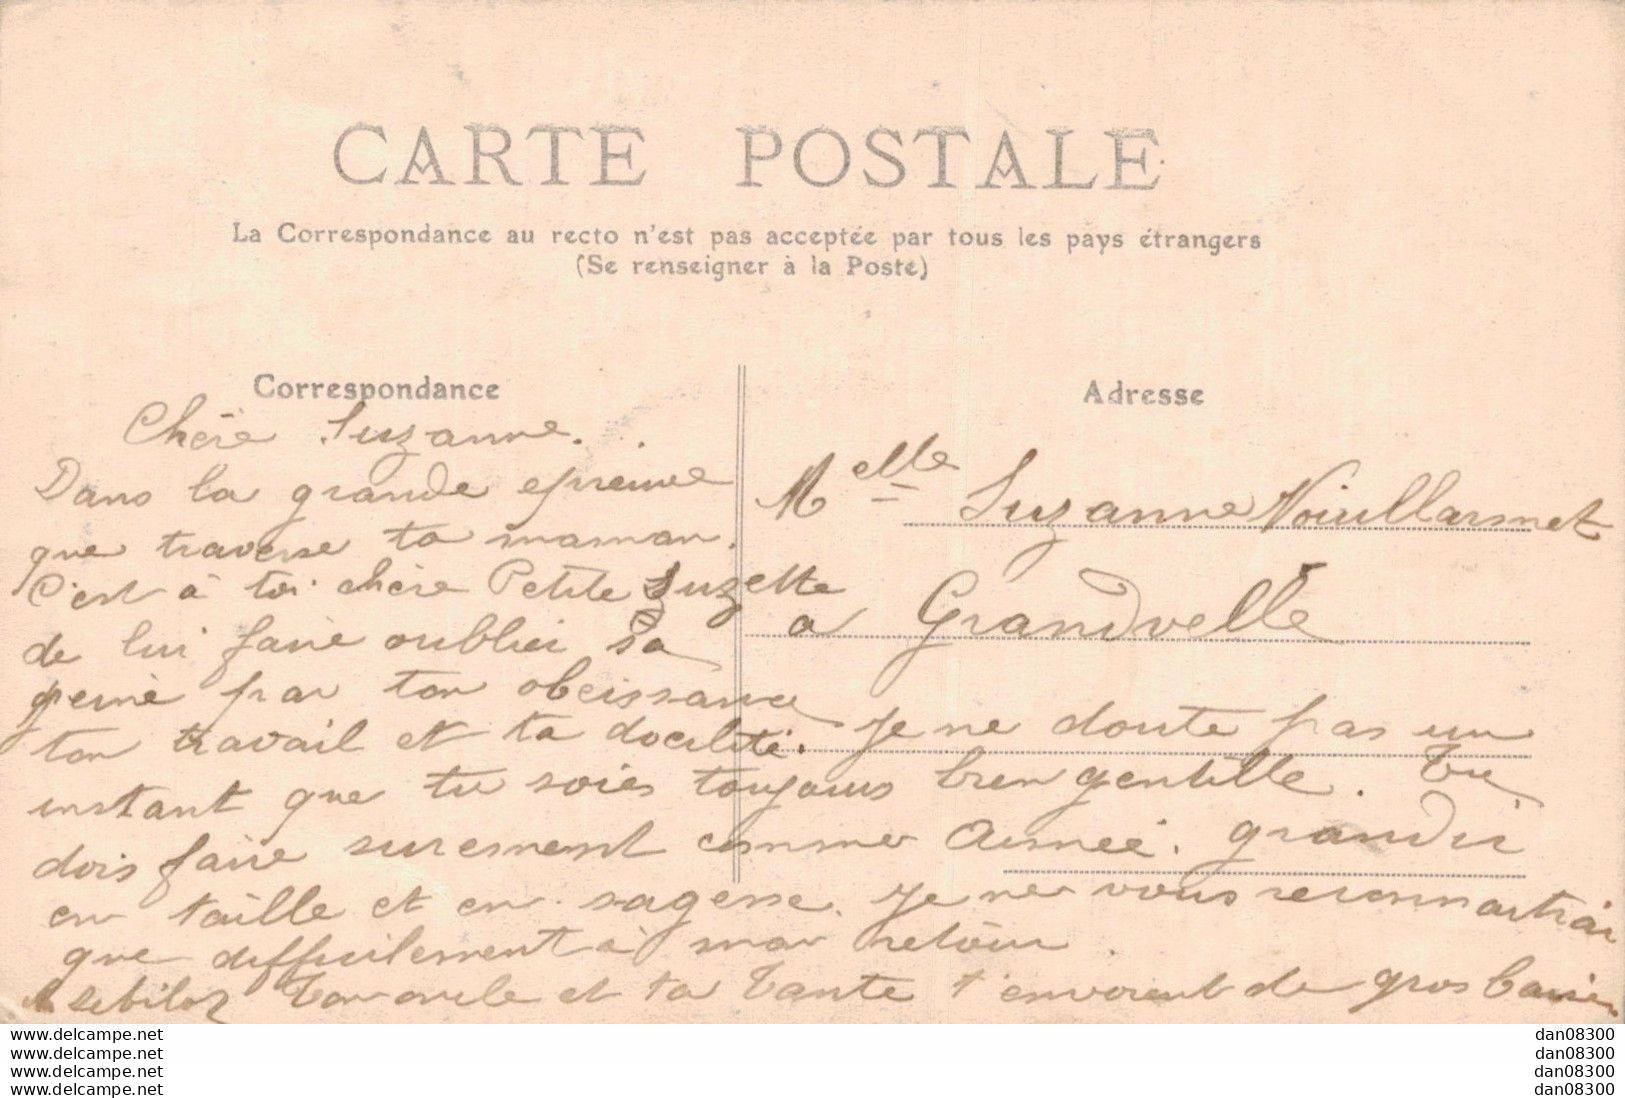 CARTE POSTALE
La Correspondance au recto n'est pas acceptée par tous les pays étrangers
(Se renseigner à la Poste)
Correspondance
Chère Suzanne.
Dans la grande epreuve
que traverse ta maman.
C'est à toi chère Petite Suzette
de lui faire oublier sa
peine par ton obeissance
ton travail et ta docilité. Je ne doute pas un
instant que tu soies toujours bien gentille. Tu
dois faire surement comme Aimée. grandir
en taille et en sagesse. Je ne vous reconnaitrai
que difficilement à mon retour.
Ton oncle et ta Tante t'envoient de gros
Adresse
Melle Suzanne
à Grandvelle
www.delcampe.net
www.delcampe.net
www.delcampe.net
www.delcampe.net
dan08300
dan08300
dan08300
dan08300